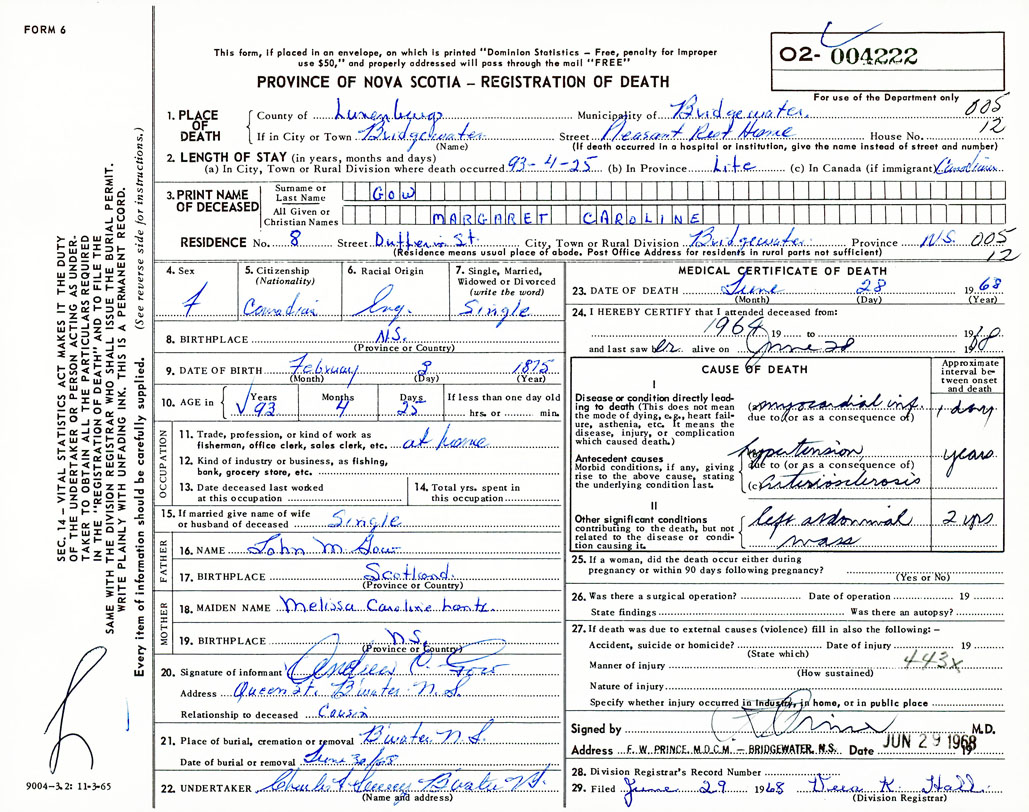 FORM 6
This form, if placed in an envelope, on which is printed "Dominion Statistics – Free, penalty for improper
use $50," and properly addressed will pass through the mail "FREE"
PROVINCE OF NOVA SCOTIA – REGISTRATION OF DEATH
O2- 004222
For use of the Department only
005
12
1. PLACE OF DEATH
County of Lunenburg Municipality of Bridgewater
If in City or Town Bridgewater Street Pleasant Rest Home House No.
(Name) (If death occurred in a hospital or institution, give the name instead of street and number)
2. LENGTH OF STAY (in years, months and days)
(a) In City, Town or Rural Division where death occurred 93-4-25 (b) In Province Life (c) In Canada (if immigrant) Canadian
3. PRINT NAME OF DECEASED
Surname or Last Name GOW
All Given or Christian Names MARGARET CAROLINE
RESIDENCE No. 8 Street Dufferin St. City, Town or Rural Division Bridgewater Province N.S. 005
(Residence means usual place of abode. Post Office Address for residents in rural parts not sufficient) 12
4. Sex F
5. Citizenship (Nationality) Canadian
6. Racial Origin Eng.
7. Single, Married, Widowed or Divorced (write the word) Single
8. BIRTHPLACE N.S.
(Province or Country)
9. DATE OF BIRTH February 3 1875
(Month) (Day) (Year)
10. AGE in Years 93 Months 4 Days 25 If less than one day old hrs. or min.
OCCUPATION
11. Trade, profession, or kind of work as fisherman, office clerk, sales clerk, etc. at home
12. Kind of industry or business, as fishing, bank, grocery store, etc.
13. Date deceased last worked at this occupation
14. Total yrs. spent in this occupation
15. If married give name of wife or husband of deceased Single
FATHER
16. NAME John M. Gow
17. BIRTHPLACE Scotland
(Province or Country)
MOTHER
18. MAIDEN NAME Melissa Caroline
19. BIRTHPLACE N.S.
(Province or Country)
20. Signature of informant Andrew O. Gow
Address Queen St. B'water N.S.
Relationship to deceased Cousin
21. Place of burial, cremation or removal B'water N.S.
Date of burial or removal June 30/68
22. UNDERTAKER B'water N.S.
(Name and address)
MEDICAL CERTIFICATE OF DEATH
23. DATE OF DEATH June 28 1968
(Month) (Day) (Year)
24. I HEREBY CERTIFY that I attended deceased from:
1964 19 to 19
and last saw her alive on June 28 1968
CAUSE OF DEATH
Approximate interval between onset and death
I
Disease or condition directly leading to death (This does not mean the mode of dying, e.g., heart failure, asthenia, etc. It means the disease, injury, or complication which caused death.)
(a) myocardial inf. 1 day
due to (or as a consequence of)
Antecedent causes
Morbid conditions, if any, giving rise to the above cause, stating the underlying condition last.
hypertension years
due to (or as a consequence of)
(c) arteriosclerosis
II
Other significant conditions contributing to the death, but not related to the disease or condition causing it.
left abdominal 2 yrs
mass
25. If a woman, did the death occur either during
pregnancy or within 90 days following pregnancy?
(Yes or No)
26. Was there a surgical operation? Date of operation 19
State findings Was there an autopsy?
27. If death was due to external causes (violence) fill in also the following: –
Accident, suicide or homicide? Date of injury 19
(State which)
443X
Manner of injury
(How sustained)
Nature of injury
Specify whether injury occurred in Industry, in home, or in public place
Signed by F Prince M.D.
Address F. W. PRINCE, M.D.C.M. – BRIDGEWATER, N.S. Date JUN 29 1968
19
28. Division Registrar's Record Number
29. Filed June 29 1968 Vera K. Hall
(Division Registrar)
SEC. 14 – VITAL STATISTICS ACT MAKES IT THE DUTY
OF THE UNDERTAKER OR PERSON ACTING AS UNDER-
TAKER TO OBTAIN ALL THE PARTICULARS REQUIRED
IN THE "REGISTRATION OF DEATH" AND TO FILE THE
SAME WITH THE DIVISION REGISTRAR WHO SHALL ISSUE THE BURIAL PERMIT.
WRITE PLAINLY WITH UNFADING INK. THIS IS A PERMANENT RECORD.
Every item of information should be carefully supplied. (See reverse side for instructions.)
9004-3.2: 11-3-65